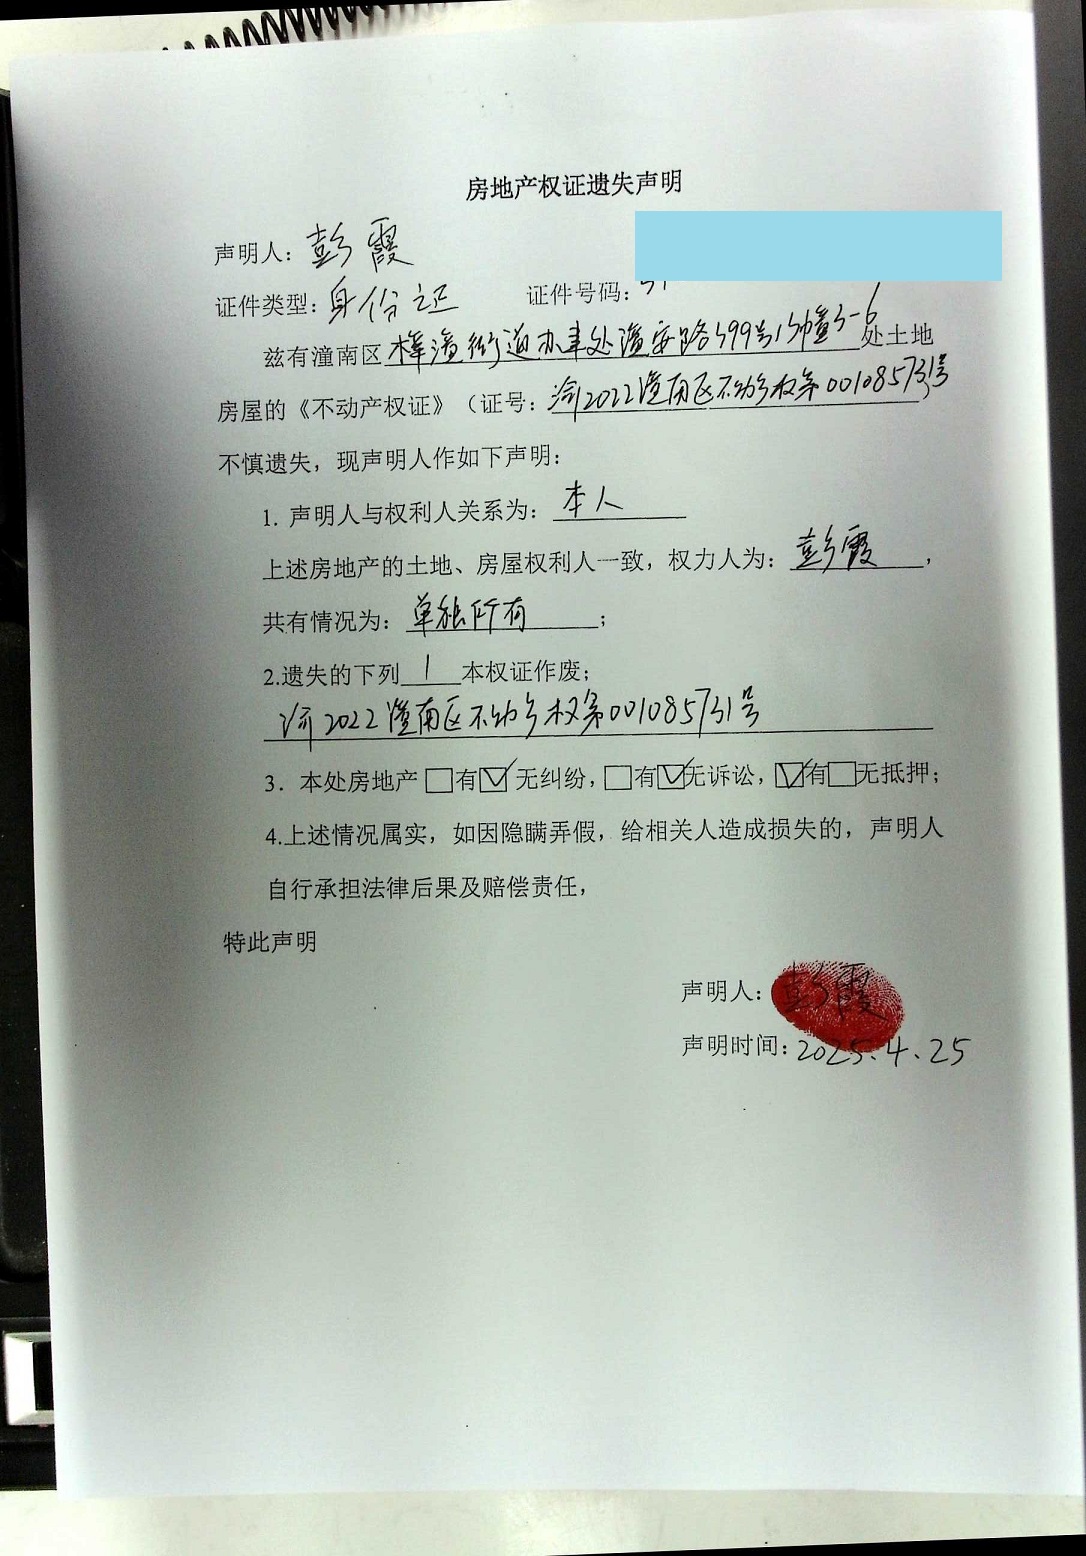 房地产权证遗失声明
声明人：彭霞
证件类型：身份证 证件号码：
兹有潼南区梓潼街道办事处潼安路399号13幢3-6处土地
房屋的《不动产权证》（证号：渝2022潼南区不动产权第001085731号）
不慎遗失，现声明人作如下声明：
1. 声明人与权利人关系为：本人
上述房地产的土地、房屋权利人一致，权力人为：彭霞，
共有情况为：单独所有；
2.遗失的下列1本权证作废；
渝2022潼南区不动产权第001085731号
3. 本处房地产□有☑无纠纷，□有☑无诉讼，☑有□无抵押；
4.上述情况属实，如因隐瞒弄假，给相关人造成损失的，声明人
自行承担法律后果及赔偿责任，
特此声明
声明人：彭霞
声明时间：2025.4.25